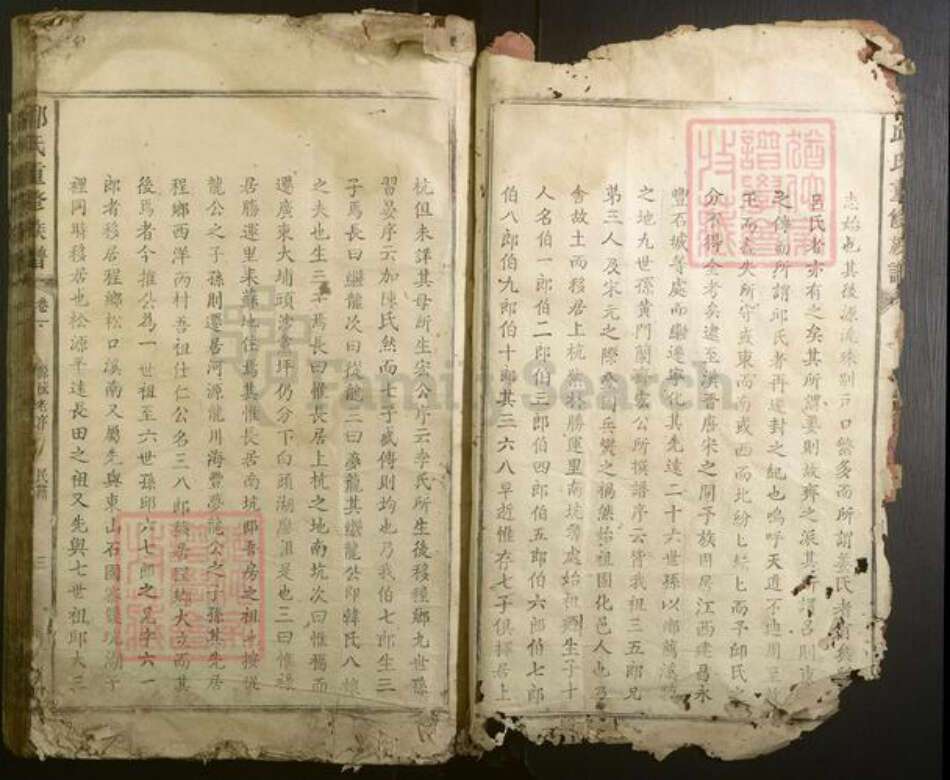 志始也其後源流殊別戶口繁多而所謂姜氏者有矣
呂氏者亦有之矣其所謂姜則故齊之派其所謂呂則
之傳而所謂邱氏者再逢封之紀也嗚呼天道不迪周至
王而盡失所守或東而南或西而北紛紛紜紜而予邱氏之
分不得全考矣逮至漢晉唐宋之間予族固居江西建昌永
豐石城等處而繼遷寧化其先遠二十六世孫以鄉薦溪
之地九世孫黃門閣齋雲公所撰譜序云皆我祖三五郎兄
弟三人及宋元之際罹司兵燹之禍然始祖團化邑人也乃
舍故土而移居上杭勝運里南坑等處始祖生子十
人名伯一郎伯二郎伯三郎伯四郎伯五郎伯六郎伯七郎
伯八郎伯九郎伯十郎其三六八早逝惟存七子俱擇居上
杭但未詳其母所生宗公序云李氏所生後移程鄉九世孫
習晏序云加陳氏然而七子咸傳則均也乃我伯七郎生三
子焉長曰繼龍次曰從龍三曰夢龍其繼龍公即韓氏八娘
之夫也生三子焉長曰惟長居上杭之地南坑次曰惟惕而
遷廣東大埔頭沙倉坪仍分下白頭湖是也三曰惟祿
居勝運里來蘇地住焉其惟長居南坑即書房之祖也按從
龍公之子孫則遷居河源龍川海豐夢龍公之子孫其先居
程鄉西洋丙村善祖仕仁公名三八郎移居程鄉大立而其
後焉者今推公為一世祖至六世孫邱六七郎之兄字六一
郎者移居程鄉松口溪南又屬先與東山石國
裡同時移居也松源平遠長田之祖又先與七世祖邱大三
邱氏重修族譜
卷一
民籍
三
FamilySearch